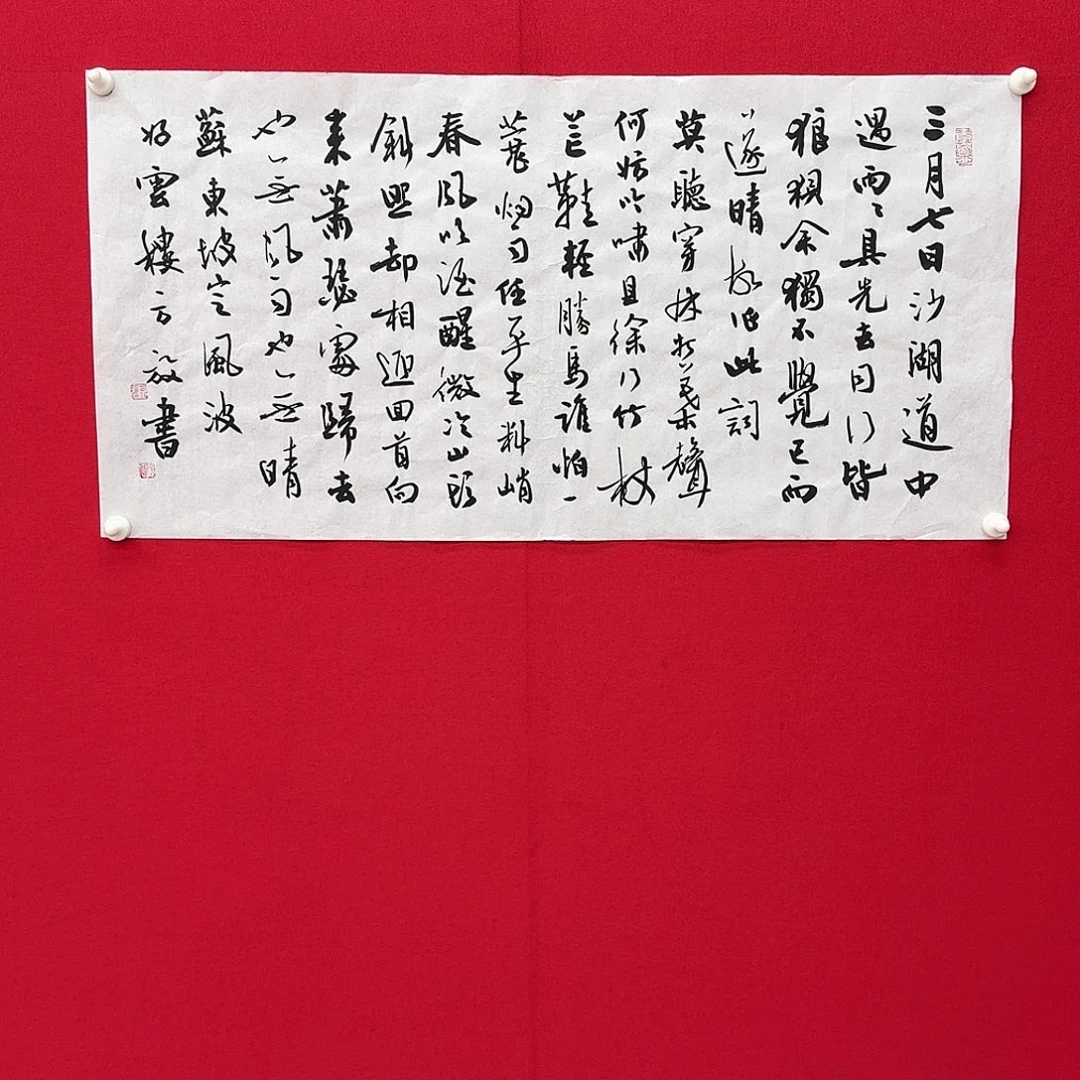 三月七日沙湖道中
遇雨〻具先去同行皆
狼狽余獨不覺已而
遂晴故作此詞
莫聽穿林打葉聲
何妨吟嘯且徐行竹杖
芒鞋輕勝馬誰怕一
蓑烟雨任平生料峭
春風吹酒醒微冷山頭
斜照却相迎回首向
来蕭瑟處歸去
也無風雨也無晴
蘇東坡定風波
好雲樓方放書